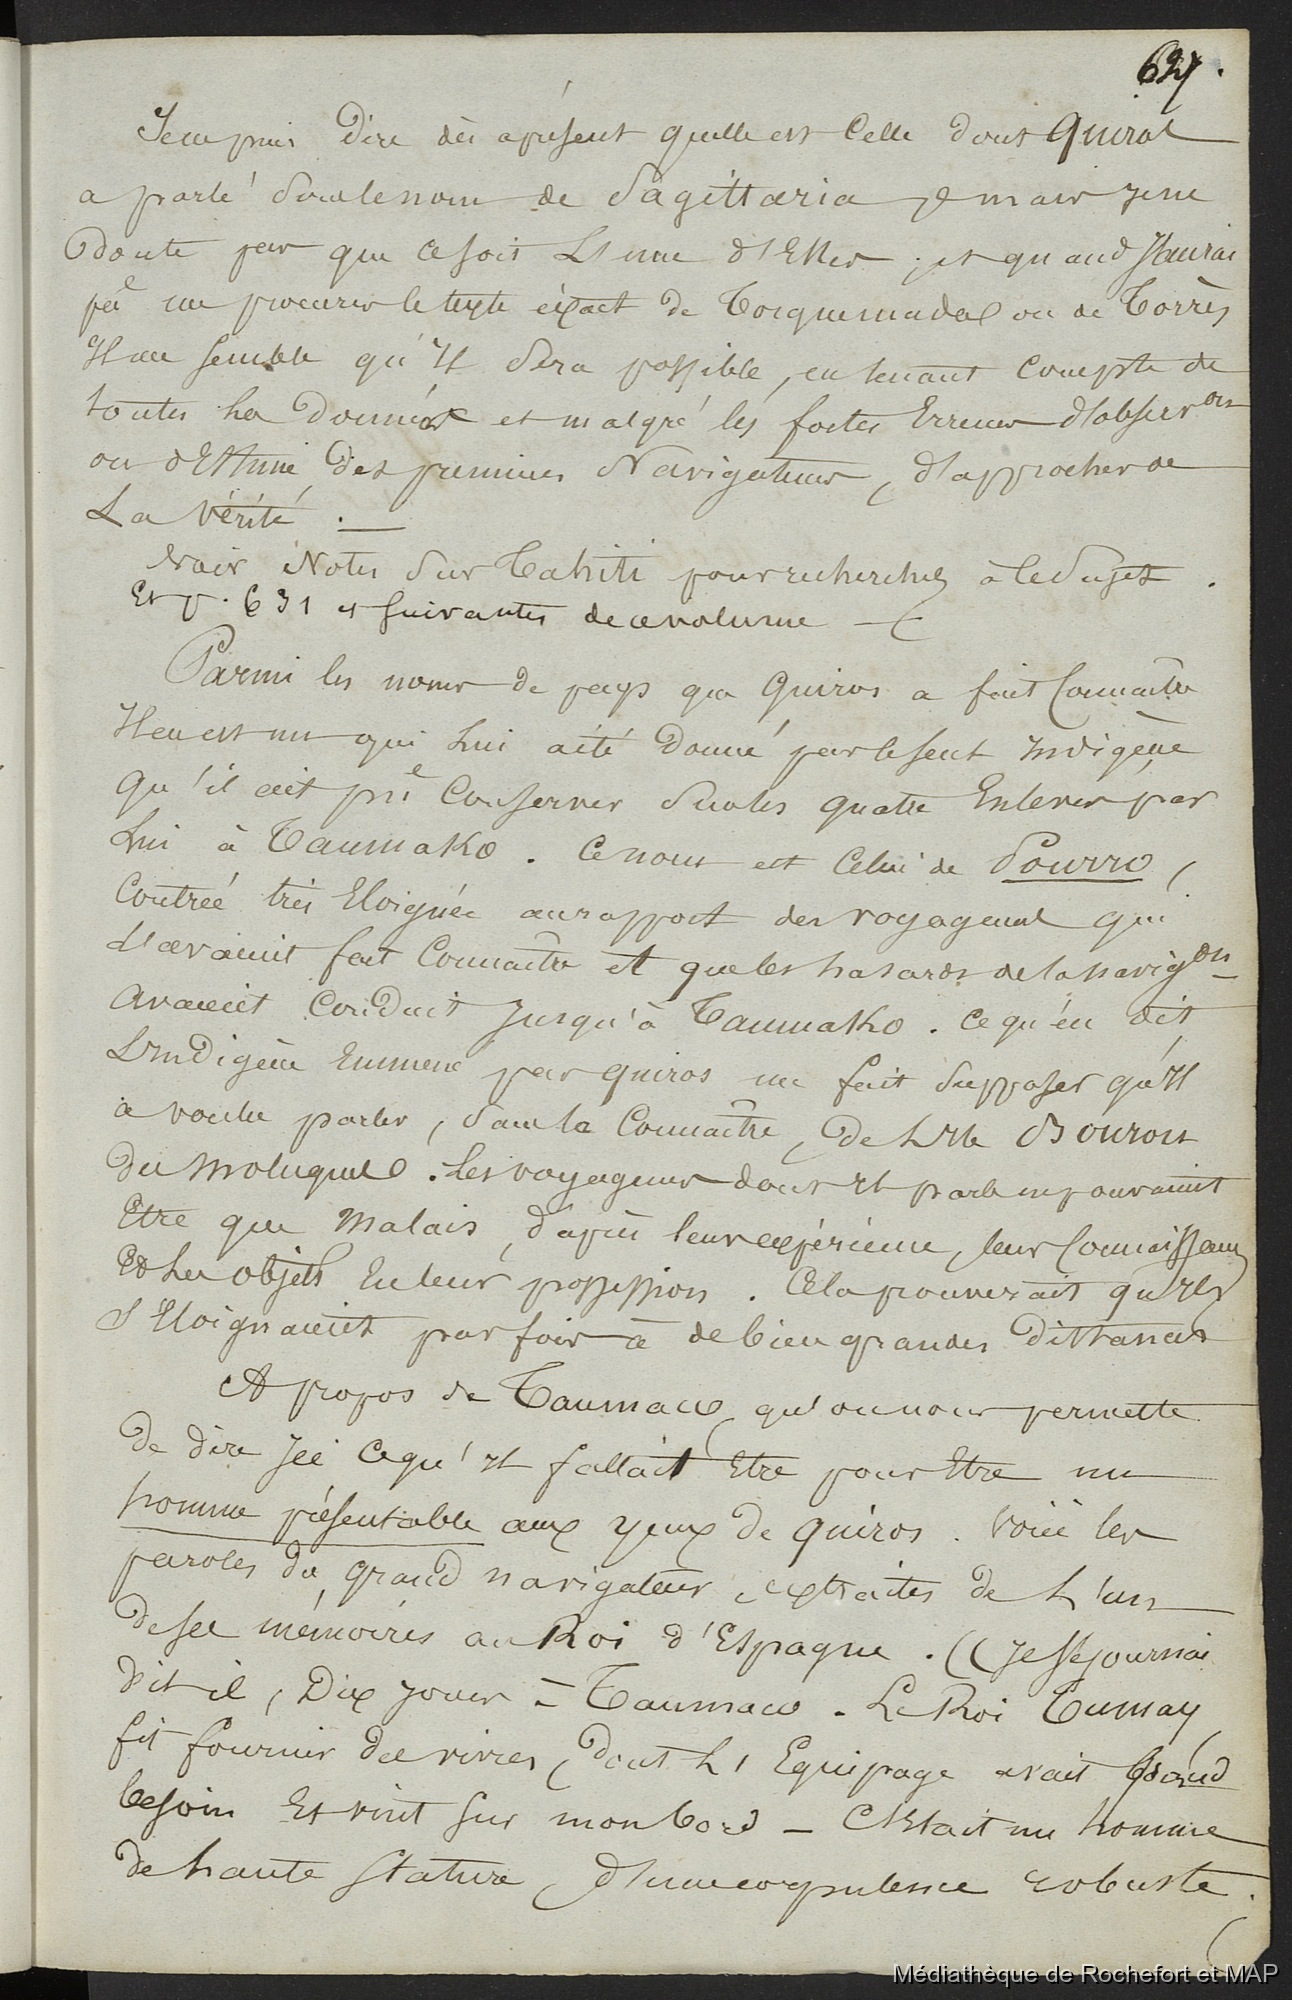 627.
Je ne puis dire dès aprésent quelle est celle dont Quiros
a parlé sous le nom de Sagittaria, mais je ne
doute pas que ce soit L'une d'Elles ; et quand J'aurai
pû me procurer le texte éxact de Torquemada ou de Torrès
Il me semble qu'Il sera possible, en tenant compte de
toutes les données et malgré les fortes Erreurs d'observon
ou d'Estime des premiers Navigateurs, d'approcher de
La Vérité. —
Voir Notes sur Tahiti pour recherches à ce sujet.
Et p. 631 et suivantes de ce volume —
Parmi les noms de pays que Quiros a fait Connaître
Il en est un qui lui a été donné par le seul Indigène
qu'il ait pû conserver sur les quatre Enlevés par
Lui à Taumako. Ce nom est celui de Pourro,
Contrée très Eloignée au rapport des voyageurs qui
L'avaient fait Connaître et que les hasards de la navigon
avaient Conduit Jusqu'à Taumako. Ce qu'en dit
L'Indigène Emmené par Quiros me fait supposer qu'Il
a voulu parler, sans la Connaître, de L'Ile Bourou
des Moluques. Les voyageurs dont Il parle ne pouvaient
Etre que Malais, d'après leur expérience, leur Connaissance
Et les objets En leur possession. Cela prouverait qu'Ils
s'Eloignaient parfois à de bien grandes distances
A propos de Taumaco, qu'on nous permette
de dire Ici ce qu'Il fallait Etre pour Etre un
homme présentable aux yeux de Quiros. Voici les
paroles du grand navigateur, extraites de L'un
de ses mémoires au Roi d'Espagne. (( Je séjournai
dit il, Dix jours à Taumaco. Le Roi Tumay
fit fournir des vivres, dont L'Equipage avait Grand
besoin Et vint sur mon bord — C'Etait un homme
de haute stature, d'une corpulence robuste.
Médiathèque de Rochefort et MAP